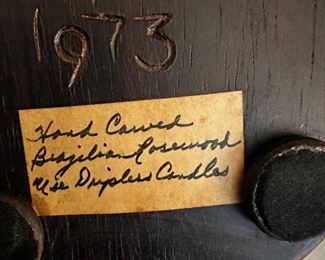 1973
Hand Carved
Brazilian Rosewood
Use Dripless Candles